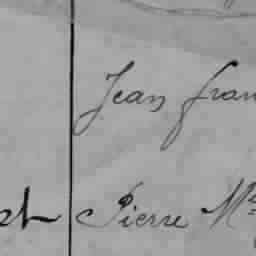 Jean fran
Pierre M